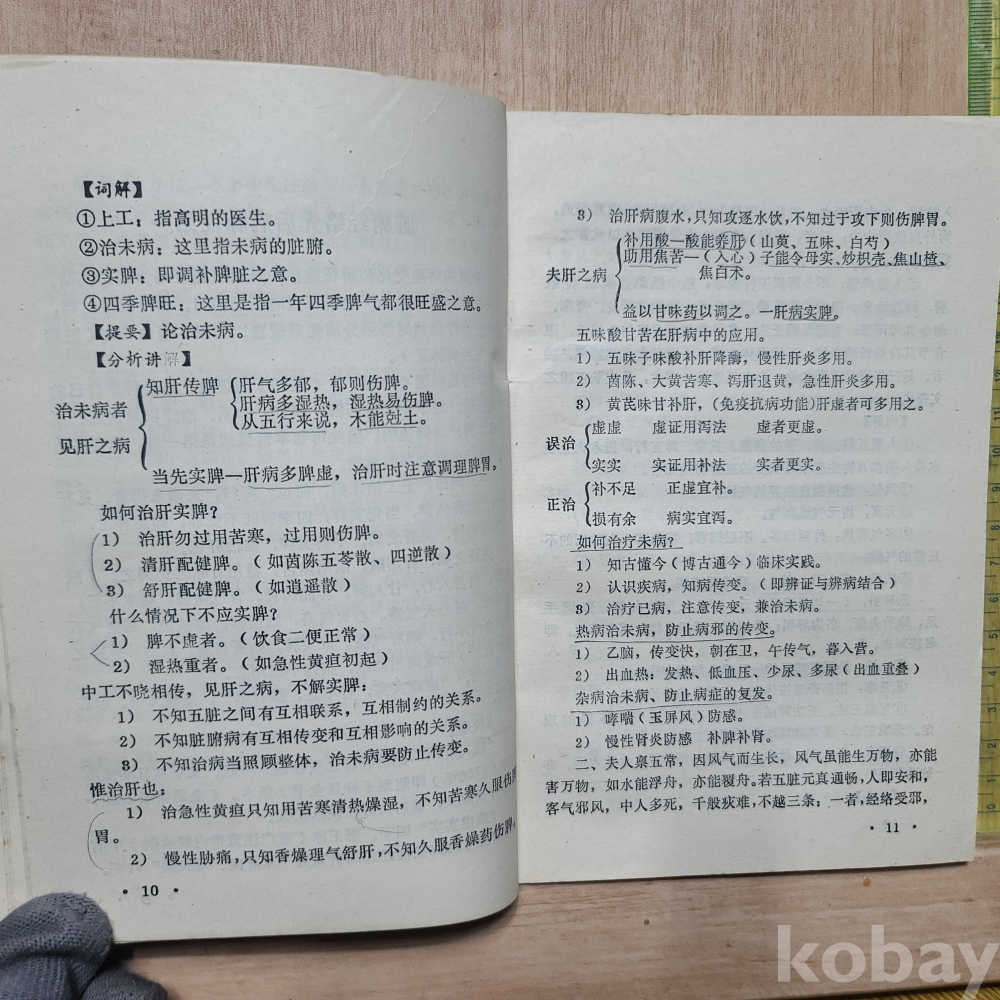 【词解】
①上工：指高明的医生。
②治未病：这里指未病的脏腑。
③实脾：即调补脾脏之意。
④四季脾旺：这里是指一年四季脾气都很旺盛之意。
【提要】论治未病。
【分析讲解】
知肝传脾
肝气多郁，郁则伤脾。
肝病多湿热，湿热易伤脾。
从五行来说，木能尅土。
治未病者
见肝之病
当先实脾—肝病多脾虚，治肝时注意调理脾胃。
如何治肝实脾？
1） 治肝勿过用苦寒，过用则伤脾。
2） 清肝配健脾。（如茵陈五苓散、四逆散）
3） 舒肝配健脾。（如逍遥散）
什么情况下不应实脾？
1） 脾不虚者。（饮食二便正常）
2） 湿热重者。（如急性黄疸初起）
中工不晓相传，见肝之病，不解实脾：
1） 不知五脏之间有互相联系，互相制约的关系。
2） 不知脏腑病有互相传变和互相影响的关系。
3） 不知治病当照顾整体，治未病要防止传变。
惟治肝也：
1） 治急性黄疸只知用苦寒清热燥湿，不知苦寒久服伤脾
胃。
2） 慢性胁痛，只知香燥理气舒肝，不知久服香燥药伤脾。
· 10 ·
3） 治肝病腹水，只知攻逐水饮，不知过于攻下则伤脾胃。
夫肝之病
补用酸—酸能养肝（山萸、五味、白芍）
助用焦苦—（入心）子能令母实、炒枳壳、焦山楂、
焦白术。
益以甘味药以调之。—肝病实脾。
五味酸甘苦在肝病中的应用。
1） 五味子味酸补肝降酶，慢性肝炎多用。
2） 茵陈、大黄苦寒、泻肝退黄，急性肝炎多用。
3） 黄芪味甘补肝，（免疫抗病功能）肝虚者可多用之。
误治
虚虚 虚证用泻法 虚者更虚。
实实 实证用补法 实者更实。
正治
补不足 正虚宜补。
损有余 病实宜泻。
如何治疗未病？
1） 知古懂今（博古通今）临床实践。
2） 认识疾病，知病传变。（即辨证与辨病结合）
3） 治疗已病，注意传变，兼治未病。
热病治未病，防止病邪的传变。
1） 乙脑，传变快，朝在卫，午传气，暮入营。
2） 出血热：发热、低血压、少尿、多尿（出血重叠）
杂病治未病、防止病症的复发。
1） 哮喘（玉屏风）防感。
2） 慢性肾炎防感 补脾补肾。
二、夫人禀五常，因风气而生长，风气虽能生万物，亦能
害万物，如水能浮舟，亦能覆舟。若五脏元真通畅，人即安和，
客气邪风，中人多死，千般疢难，不越三条：一者，经络受邪，
· 11 ·
kobay